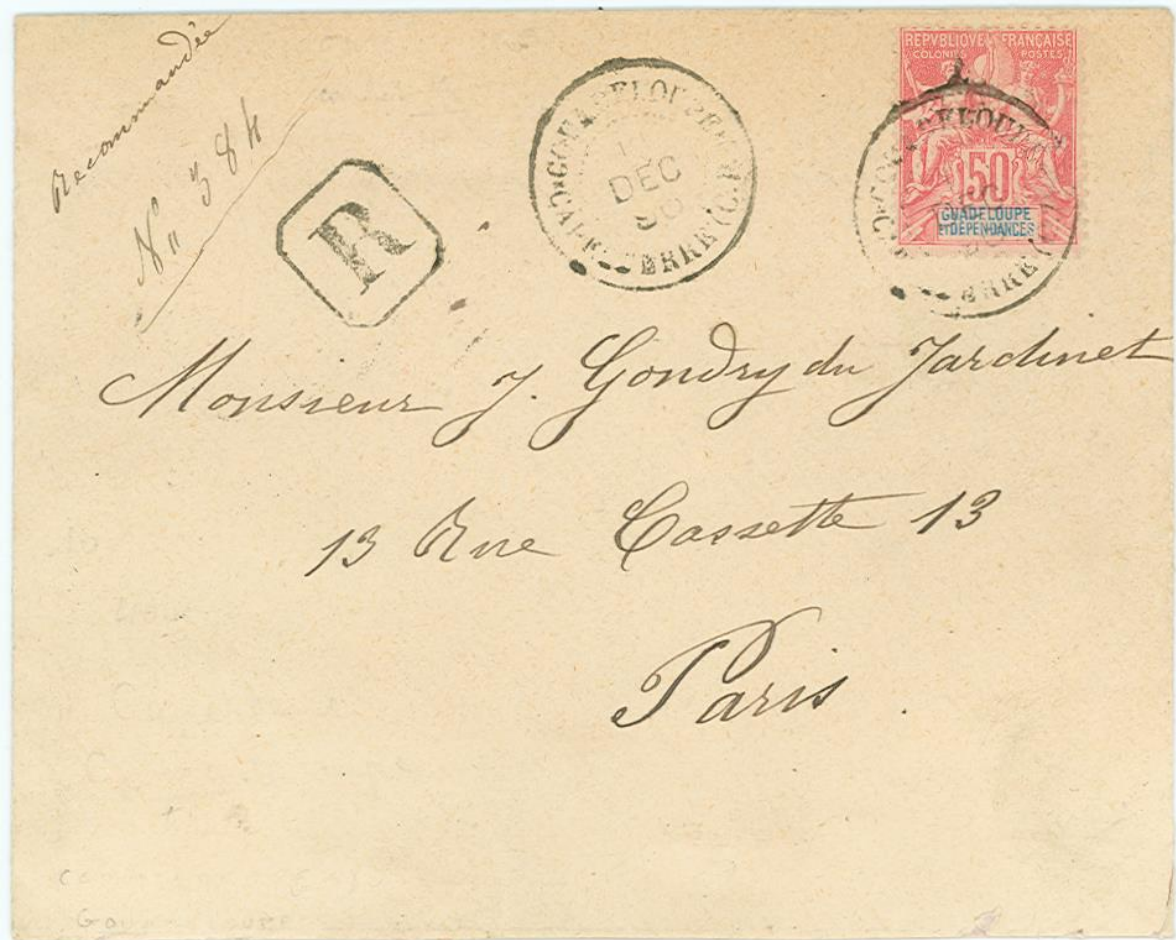 Recommandée
N° 384
R
DEC
REPVBLIQVE FRANÇAISE
COLONIES POSTES
50
GUADELOUPE
ET DÉPENDANCES
Monsieur J. Gondry du Jardinet
13 Rue Cassette 13
Paris.